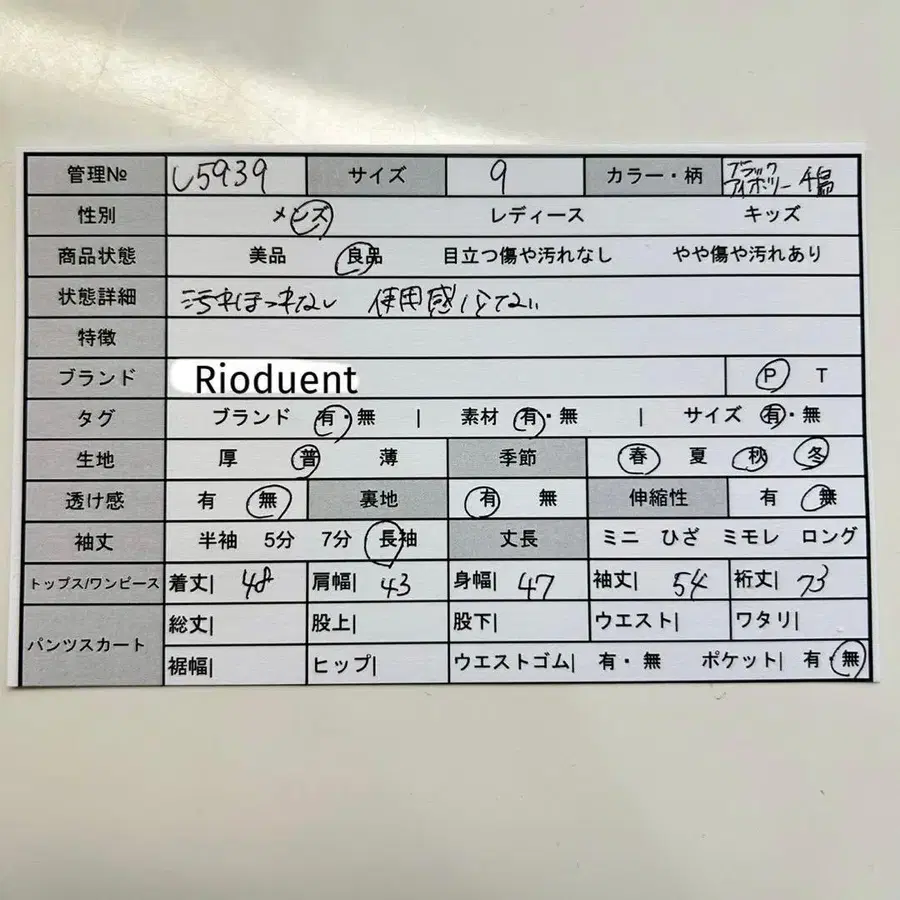 管理№ し5939 サイズ 9 カラー・柄 ブラック アイボリー 千鳥
性別 メンズ レディース キッズ
商品状態 美品 良品 目立つ傷や汚れなし やや傷や汚れあり
状態詳細 汚れほつれなし 使用感
特徴
ブランド Rioduent P T
タグ ブランド 有・無 | 素材 有・無 | サイズ 有・無
生地 厚 普 薄 季節 春 夏 秋 冬
透け感 有 無 裏地 有 無 伸縮性 有 無
袖丈 半袖 5分 7分 長袖 丈長 ミニ ひざ ミモレ ロング
トップス/ワンピース 着丈| 48 肩幅| 43 身幅| 47 袖丈| 54 裄丈| 73
パンツスカート 総丈| 股上| 股下| ウエスト| ワタリ|
裾幅| ヒップ| ウエストゴム| 有・無 ポケット| 有・無